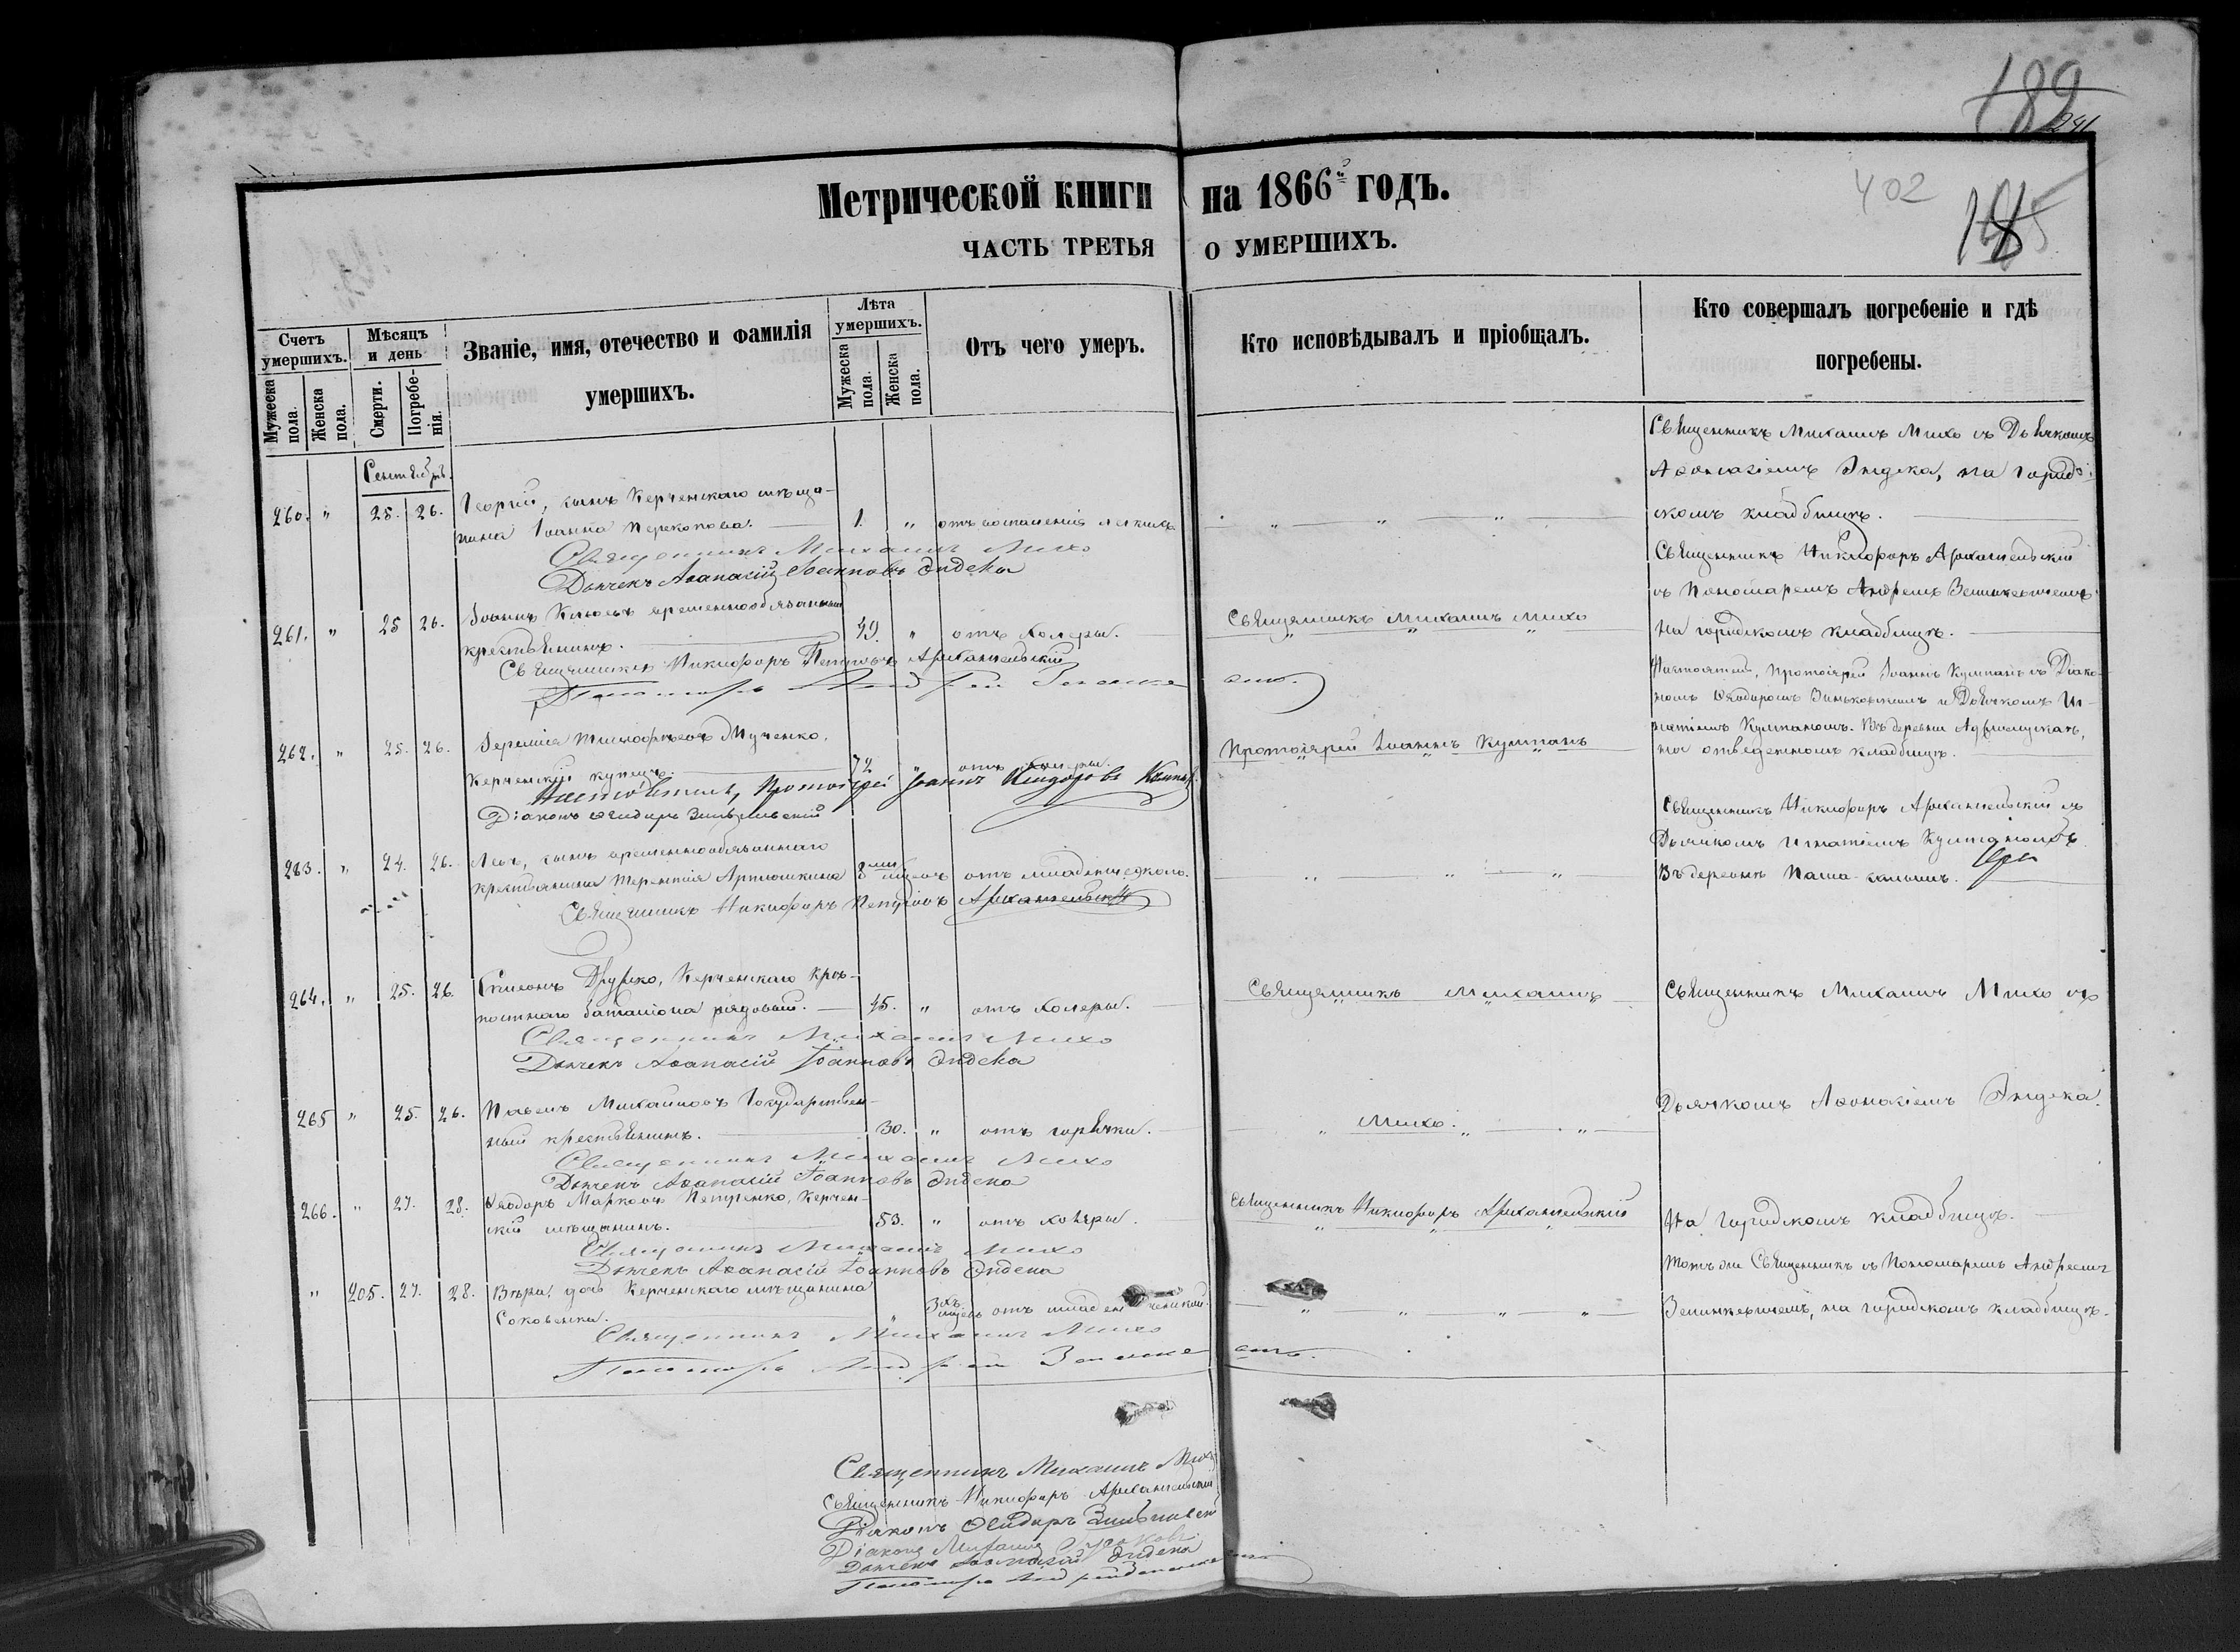 189
241
402
185
Метрической книги на 1866й годъ.
ЧАСТЬ ТРЕТЬЯ О УМЕРШИХЪ.
Счетъ умершихъ.
Мужеска пола.
Женска пола.
Мѣсяцъ и день
Смерти.
Погребенія.
Званіе, имя, отечество и фамилія умершихъ.
Лѣта умершихъ.
Мужеска пола.
Женска пола.
Отъ чего умеръ.
Кто исповѣдывалъ и пріобщалъ.
Кто совершалъ погребеніе и гдѣ погребены.
Сентябрь.
260. " 25. 26. Георгій, сынъ Керченскаго мѣща-
нина Іоанна Перекопова. 1. " отъ воспаленія легкихъ
Священникъ Михаилъ Михо съ Дьячкомъ
Аѳанасіемъ Эндека, на город-
скомъ кладбищѣ.
Священникъ Михаилъ Михо
Дьячекъ Аѳанасій Іоанновъ Эндека
261. " 25 26. Іоаннъ временнообязанный
крестьянинъ. 49. " отъ холеры.
Священникъ Михаилъ Михо
Священникъ Никифоръ Архангельскій
съ Пономаремъ Андреемъ Зенинкевичемъ
на городскомъ кладбищѣ.
Священникъ Никифоръ Петровъ Архангельскій
Пономарь Андрей
262. " 25. 26. Іеремія Тимофѣевъ Мученко,
Керченскій купецъ. 72 " отъ холеры.
Протоіерей Іоаннъ Кумпанъ
Настоятель, Протоіерей Іоаннъ Кумпанъ съ Діако-
номъ Ѳеодоромъ и Дьячкомъ Иг-
натіемъ Кумпаномъ. Въ деревни
на отведенномъ кладбищѣ.
Настоятель, Протоіерей Іоаннъ
Діаконъ Ѳеодоръ
263. " 24. 26. Левъ, сынъ временнообязаннаго
крестьянина Терентія Артюшкина 8ми мѣсяцъ отъ младенческаго.
Священникъ Никифоръ Архангельскій съ
Дьячкомъ Игнатіемъ Кумпаномъ
Въ деревнѣ
Священникъ Никифоръ Петровъ Архангельскій
264. " 25. 26. Симеонъ Керченскаго крѣ-
постнаго баталіона рядовый. 45. " отъ холеры.
Священникъ Михаилъ
Священникъ Михаилъ Михо съ
Священникъ Михаилъ Михо
Дьячекъ Аѳанасій Іоанновъ Эндека
265 " 25. 26. Павелъ Михайловъ Государствен-
ный крестьянинъ. 30. " отъ горячки.
Михо.
Дьячкомъ Аѳанасіемъ Эндека.
Священникъ Михаилъ Михо
Дьячекъ Аѳанасій Іоанновъ Эндека
266. " 27. 28. Ѳеодоръ Марковъ Петренко, Керчен-
скій мѣщанинъ. 53. " отъ холеры.
Священникъ Никифоръ Архангельскій
На городскомъ кладбищѣ.
Священникъ Михаилъ Михо
Дьячекъ Аѳанасій Іоанновъ Эндека
" 205. 27. 28. Вѣра, дочь Керченскаго мѣщанина
" 3хъ отъ младенческой.
Тотъ же Священникъ съ Пономаремъ Андреемъ
Зенинкевичемъ, на городскомъ кладбищѣ.
Священникъ Михаилъ Михо
Пономарь Андрей
Священникъ Михаилъ Михо
Священникъ Никифоръ Архангельскій
Діаконъ Ѳеодоръ
Діаконъ Михаилъ
Дьячекъ Аѳанасій Эндека
Пономарь Андрей